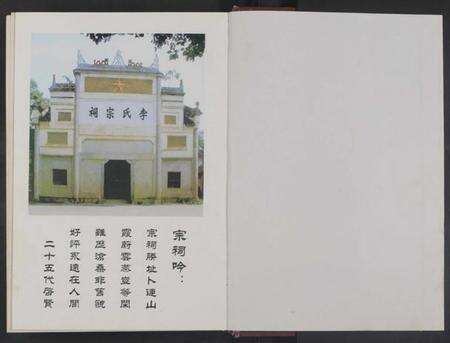 李氏宗祠
宗祠吟：
宗祠勝址卜連山
霞蔚雲蒸豈等閑
雖歷滄桑非舊貌
好評永遠在人間
二十五代啓賢